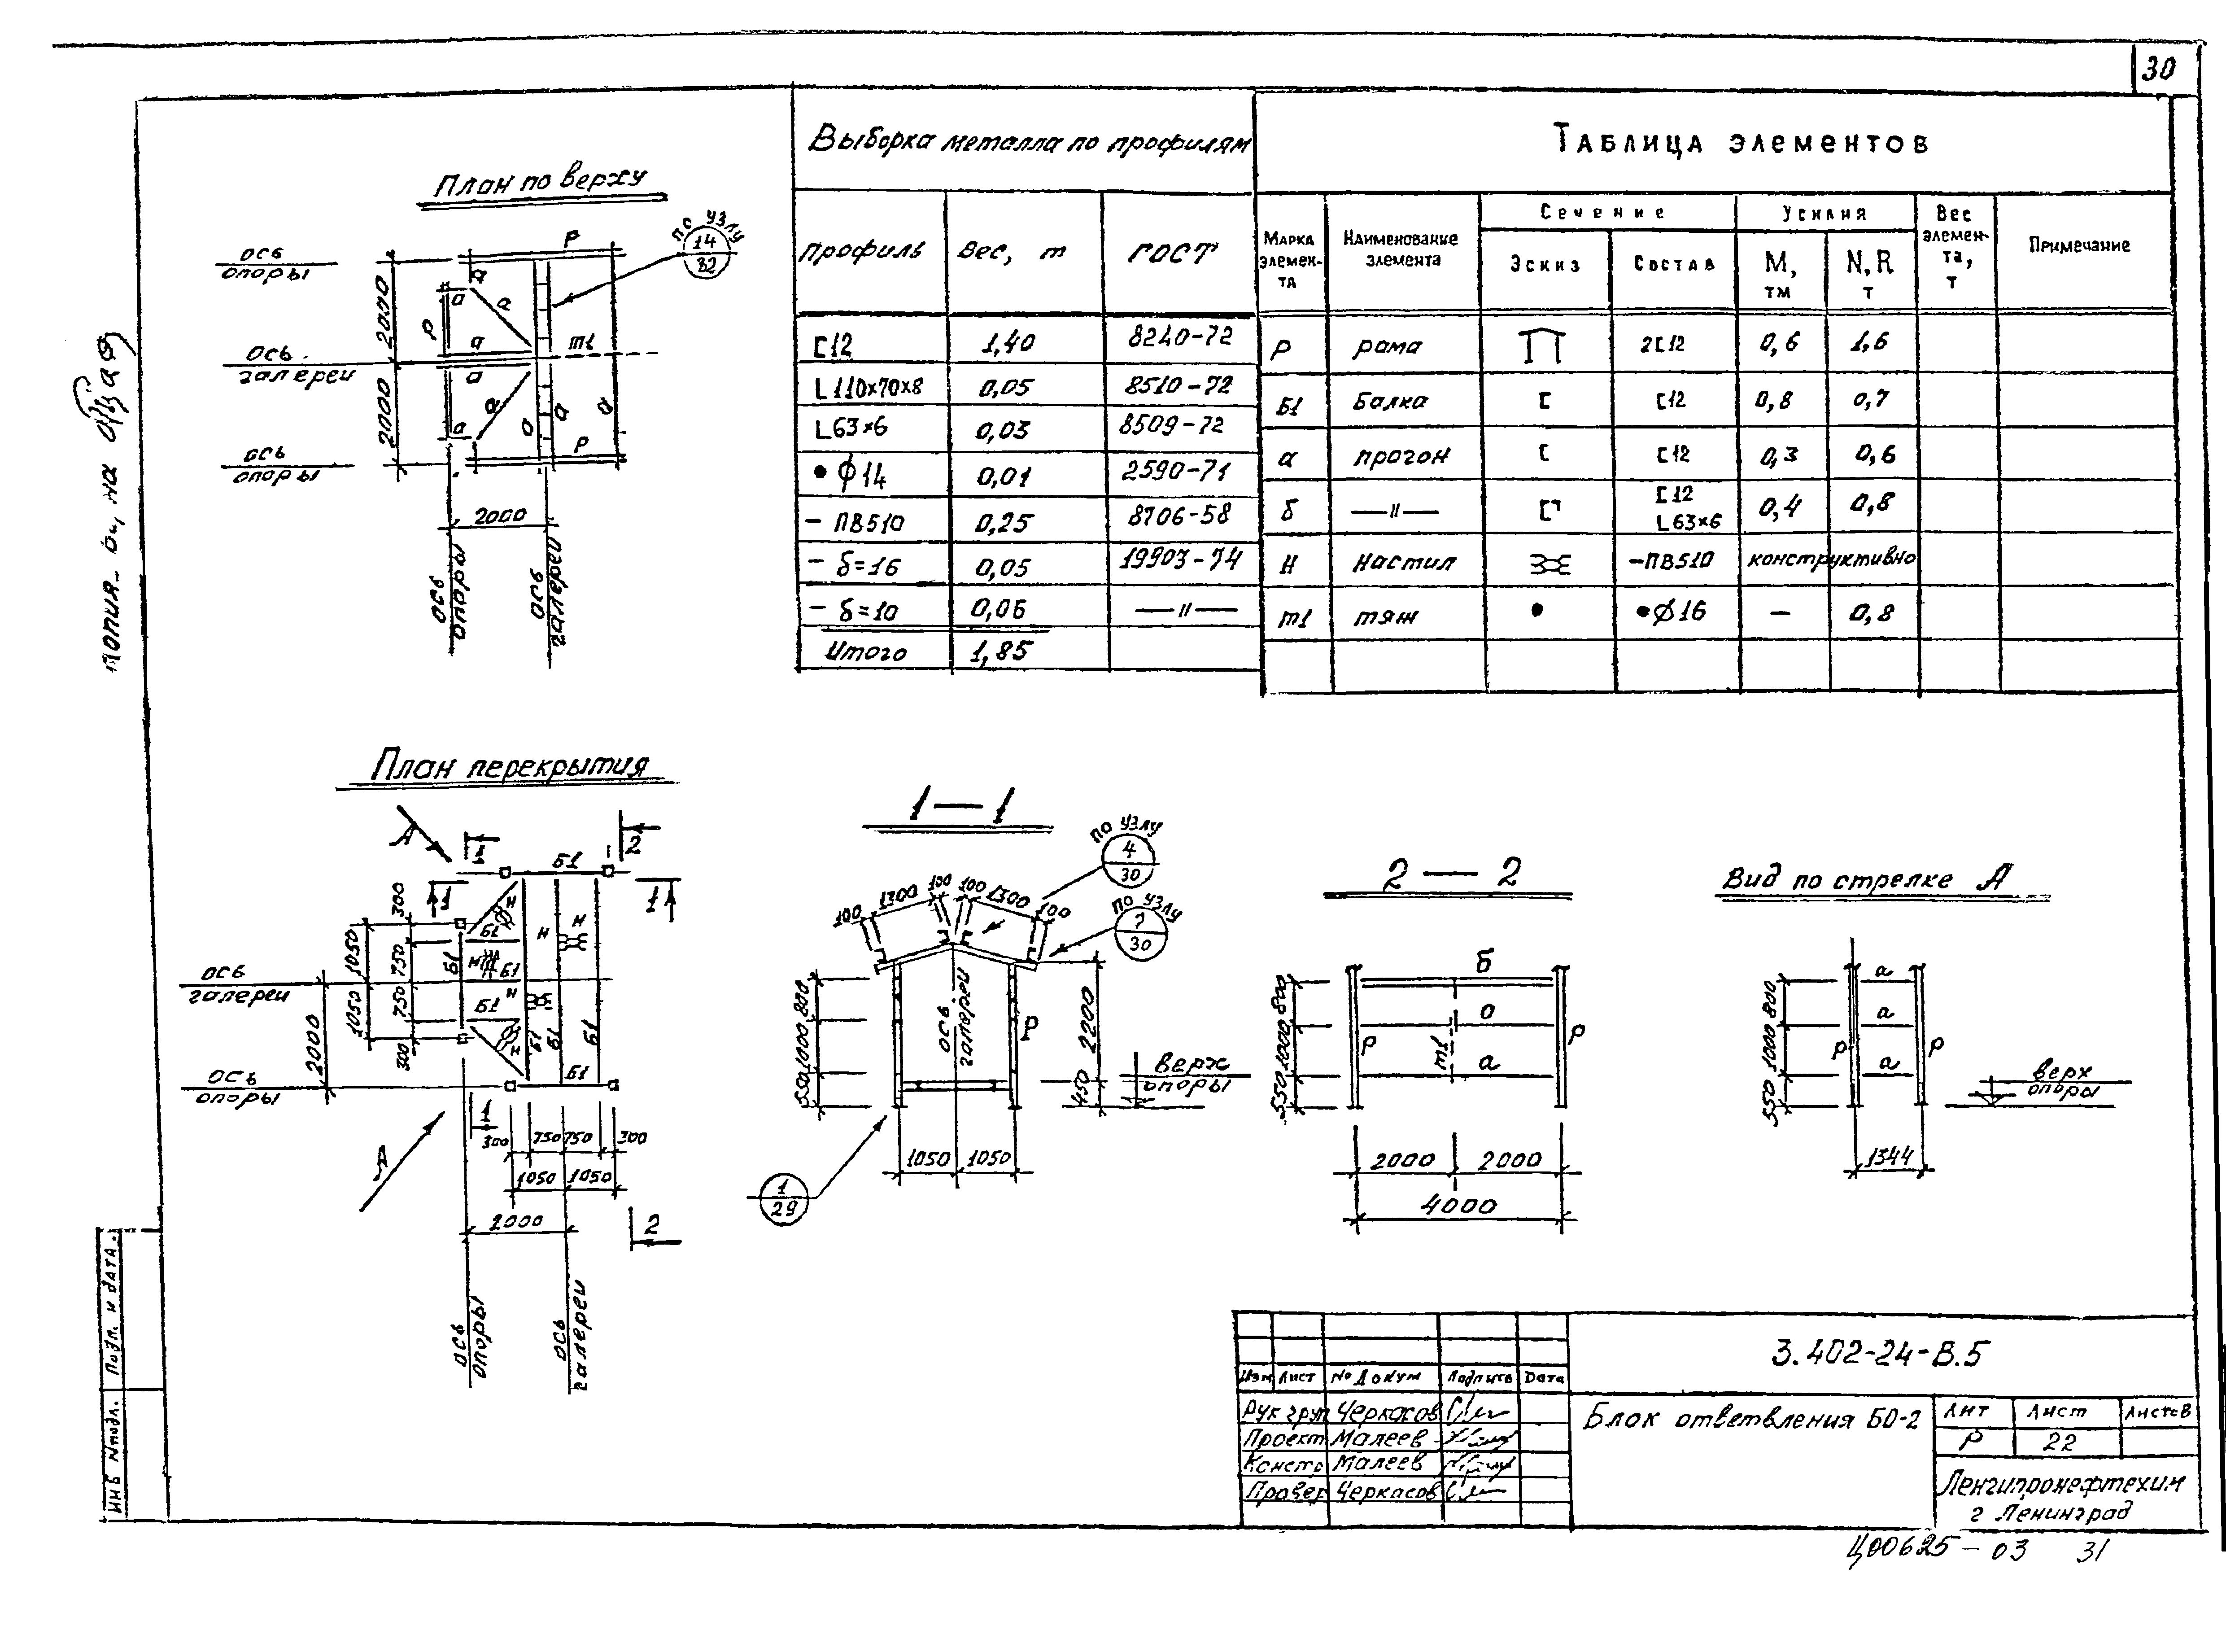 30
План по верху
по узлу
14
32
ось
опоры
ось
галереи
ось
опоры
2000
2000
Р
Р
Р
а
а
а
а
а
а
а
а
т1
2000
ось
опоры
ось
галереи
Выборка металла по профилям
Профиль Вес, т ГОСТ
[12 1,40 8240-72
L110×70×8 0,05 8510-72
L63×6 0,03 8509-72
• ϕ14 0,01 2590-71
- ПВ510 0,25 8706-58
- δ=16 0,05 19903-74
- δ=10 0,06 —"—
Итого 1,85
Таблица элементов
Марка элемен-та
Наименование элемента
Сечение
Эскиз Состав
Усилия
М, тм
N, R т
Вес элемен-та, т
Примечание
Р рама 2[12 0,6 1,6
Б1 Балка [ [12 0,8 0,7
а прогон [ [12 0,3 0,6
б —"— [12 L63×6 0,4 0,8
Н Настил -ПВ510 конструктивно
т1 тяж • •ϕ16 — 0,8
План перекрытия
А
1
2
1
1
Б1
Б1
Б1
Б1
Б1
Б1
Б1
Б1
Б1
Н
Н
Н
Н
Н
Н
300
750
750
300
1050
1050
2000
ось
галереи
ось
опоры
А
1
300 750 750 300
1050 1050
2000
2
ось
опоры
ось
галереи
1—1
по узлу
4
30
по узлу
7
30
100 1300 100 100 1300 100
800
1000
550
ось
галереи
Р
2200
450
Верх
опоры
1050 1050
1
29
2—2
б
а
а
Р
Р
т1
800
1000
550
2000 2000
4000
Вид по стрелке А
а
а
а
Р
Р
800
1000
550
Верх
опоры
1344
3.402-24-В.5
Изм Лист № Докум Подпись Дата
Рук груп Черкасов
Проект Малеев
Констр Малеев
Провер Черкасов
Блок ответвления БО-2
Лит Лист Листов
Р 22
Ленгипронефтехим
г Ленинград
Ц00625-03 31
Инв № подл. Подп. и дата